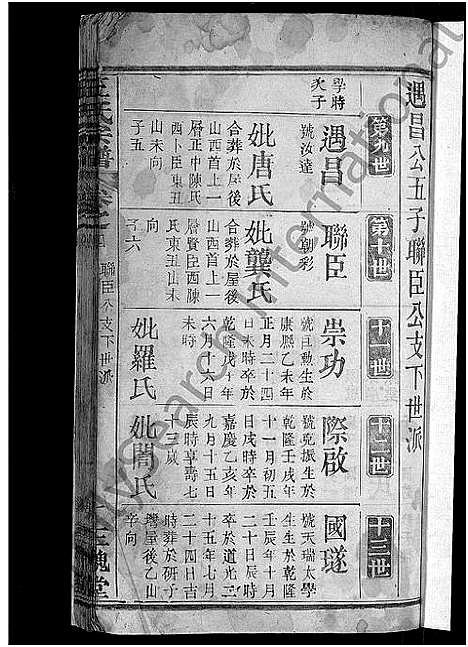 遇昌公五子聯臣公支下世派
第九世
學時
次子
遇昌
號汝達
妣唐氏
合葬於屋後
山西首上一
層正中陳氏
西卜臣東丑
山未向
子五
第十世
聯臣
號朝彩
妣龔氏
合葬於屋後
山西首上一
層賢臣西陳
氏東丑山未
向
子六
十一世
崇功
號巨勳生於
康熙乙未年
正月二十四
日未時卒於
乾隆戊午年
六月十六日
未時
妣羅氏
十二世
際啟
號堯振生於
乾隆壬戌年
十一月初五
日戌時卒於
嘉慶乙亥年
九月十五日
辰時享壽七
十三歲
妣閻氏
十三世
國璲
號天瑞太學
生生於乾隆
壬辰年十月
二十日辰時
卒於道光三
十五年七月
二十四日吉
時葬於研子
灣屋後乙山
辛向
王氏宗譜
聯臣公支下世派
三槐堂
MySearch International